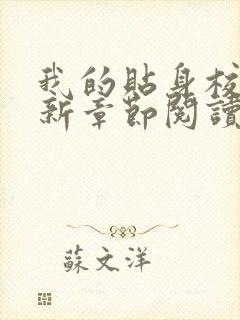 我的貼身校
新章節閱讀
蘇文洋